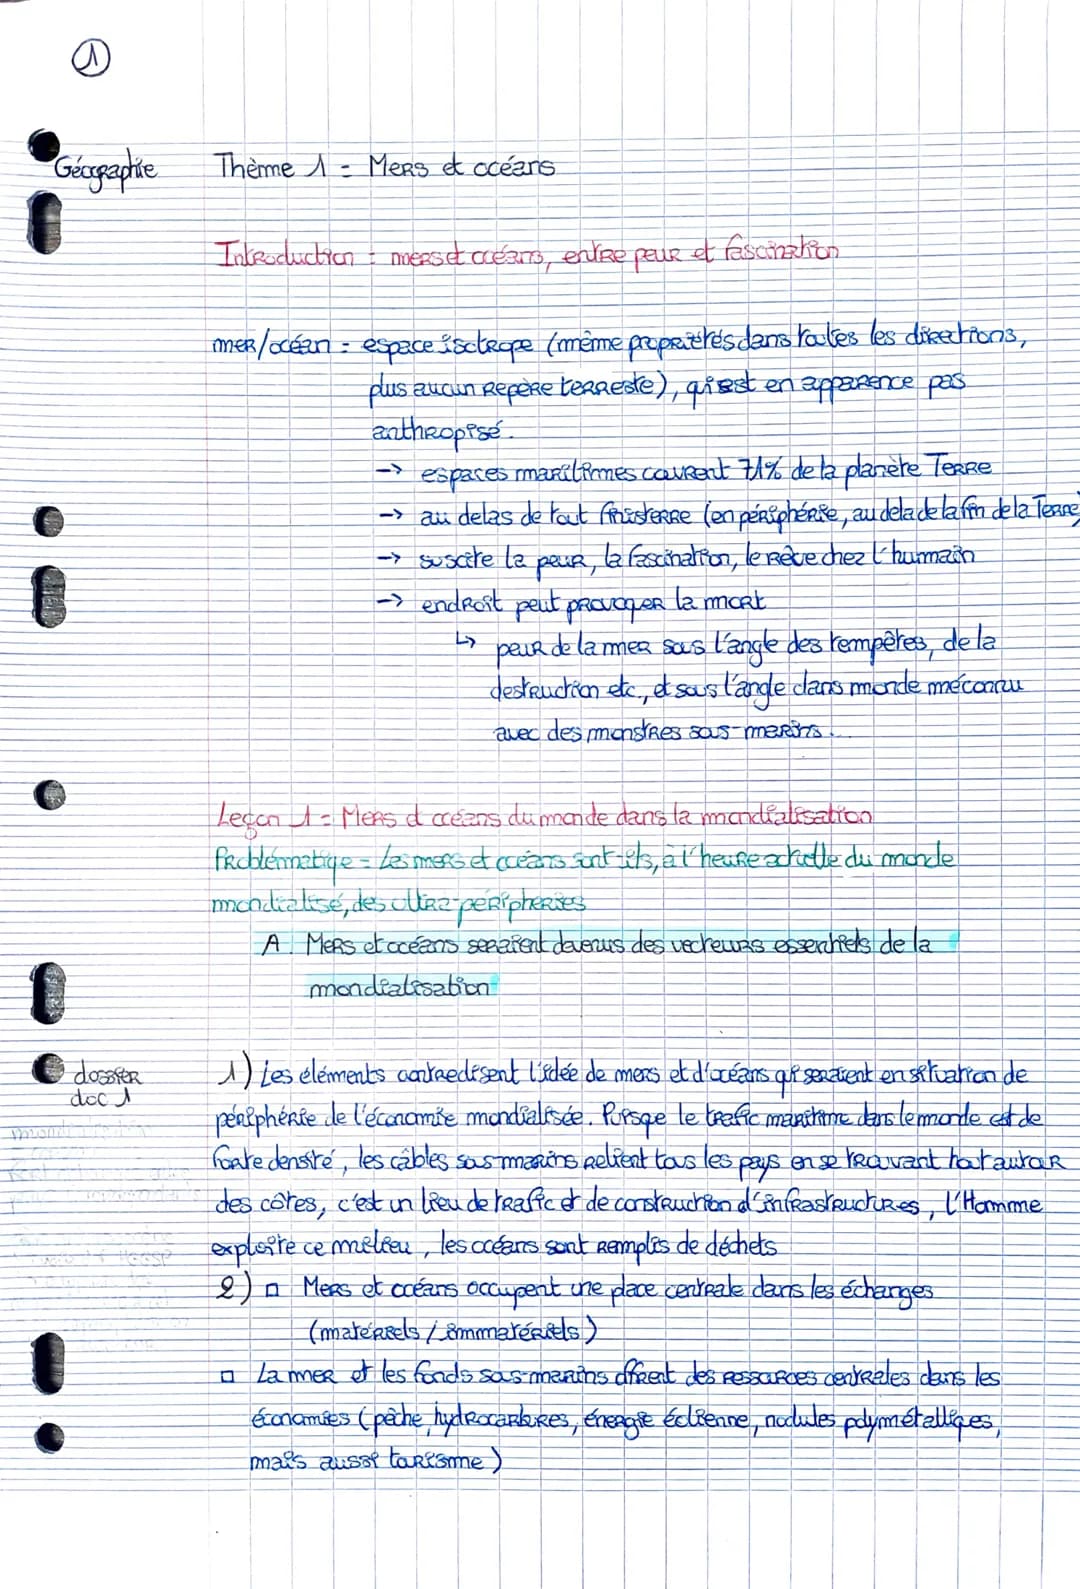 1
Géographie Thème 1 = Mers et océans
Introduction : mers et océans, entre peur et fascination
mer/océan = espace isotrope (même propriétés dans toutes les directions,
plus aucun repère terreste), qui est en apparence pas
anthropisé.
→ espaces maritimes couvrent 71% de la planète Terre
→ au delas de tout finisterre (en périphérie, au dela de la fin de la Terre)
→ suscite la peur, la fascination, le rêve chez l'humain
→ endroit peut provoquer la mort
↳ peur de la mer sous l'angle des tempêtes, de la
destruction etc., et sous l'angle dans monde méconnu
avec des monstres sous-marins.
Leçon 1 = Mers et océans du monde dans la mondialisation
Problématique = Les mers et océans sont-ils, à l'heure actuelle du monde
mondialisé, des ultra-périphéries
A. Mers et océans seraient devenus des vecteurs essentiels de la
mondialisation
dossier
doc 1
1) Les éléments contredisent l'idée de mers et d'océans qui seraient en situation de
périphérie de l'économie mondialisée. Puisque le trafic maritime dans le monde est de
forte densité, les câbles sous-marins relient tous les pays en se trouvant tout autour
des côtes, c'est un lieu de trafic et de construction d'infrastructures, l'Homme
exploite ce milieu, les océans sont remplis de déchets
2) □ Mers et océans occupent une place centrale dans les échanges
(matériels / immatériels)
□ La mer et les fonds sous-marins offrent des ressources centrales dans les
économies (pêche, hydrocarbures, énergie éolienne, nodules polymétalliques,
mais aussi tourisme)